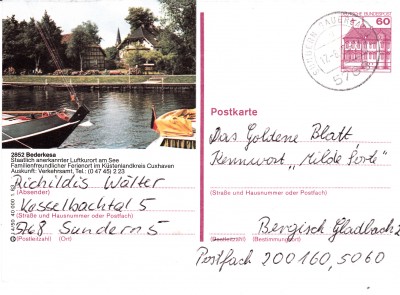 DEUTSCHE BUNDESPOST
60
SUNDERN, SAUERL
2852 Bederkesa
Staatlich anerkannter Luftkurort am See
Familienfreundlicher Ferienort im Küstenlandkreis Cuxhaven
Auskunft: Verkehrsamt, Tel.: (0 47 45) 2 23
Richildis Wälter
(Absender)
Kesselbachtal 5
(Straße und Hausnummer oder Postfach)
5768 Sundern 5
(Postleitzahl) (Ort)
Postkarte
Das Goldene Blatt
Kennwort „Milde Sorte"
(Straße und Hausnummer oder Postfach)
Bergisch Gladbach 2
(Postleitzahl) (Bestimmungsort)
Postfach 200160, 5060